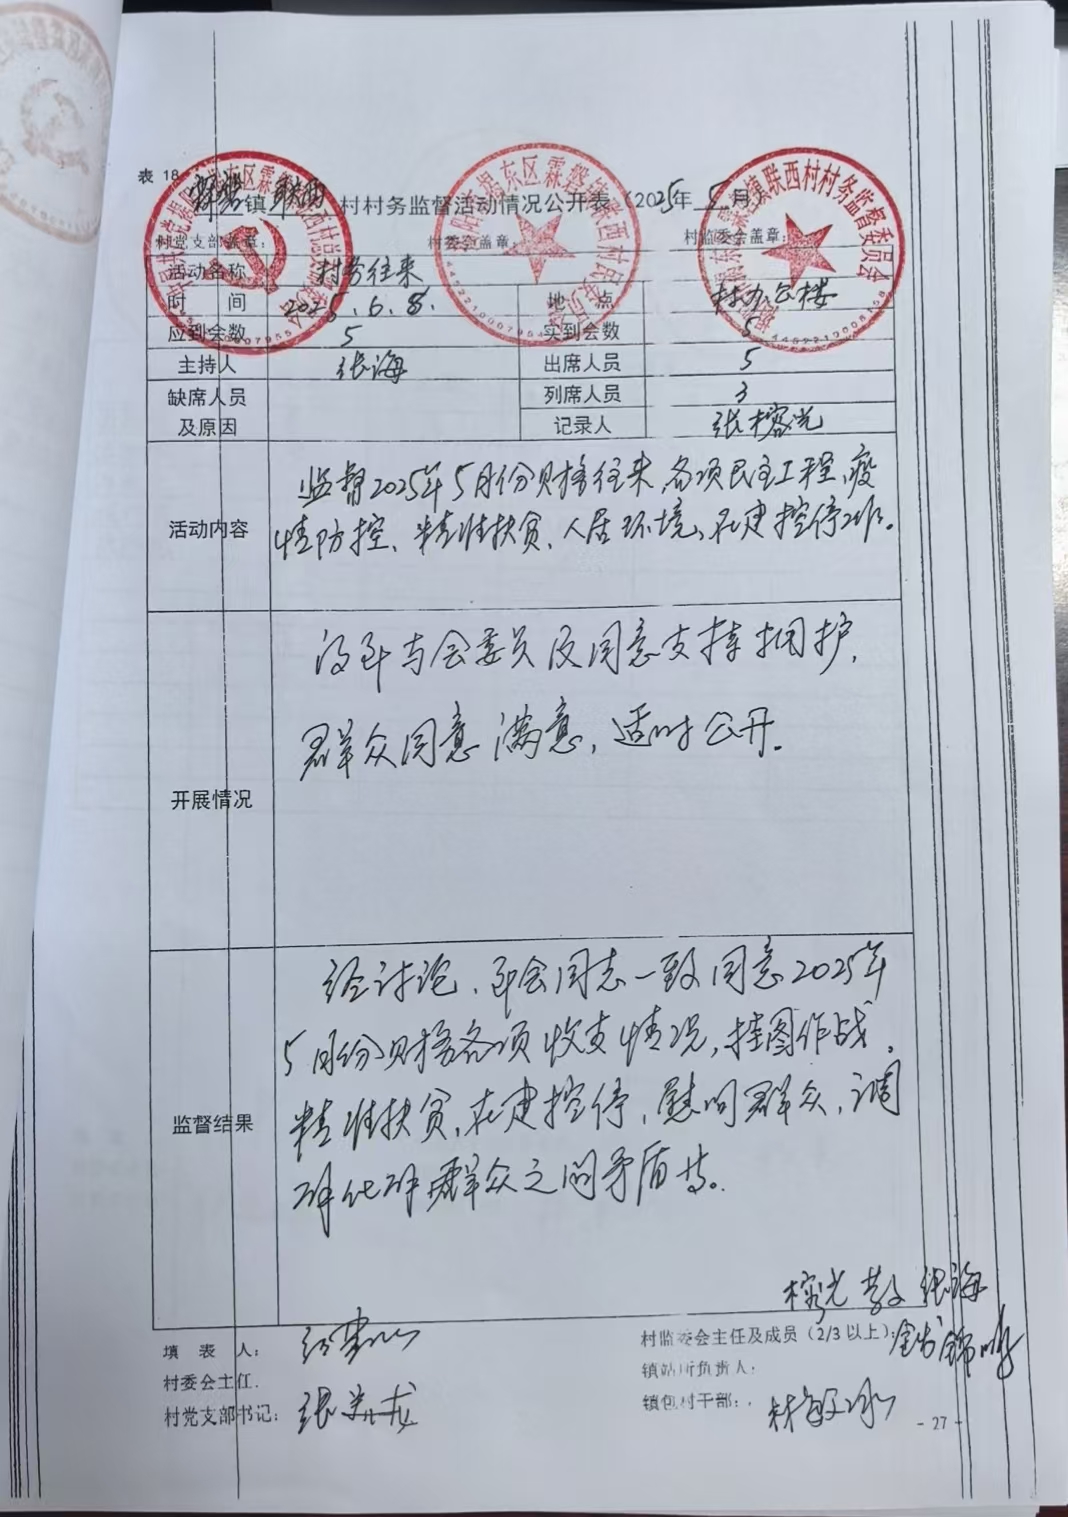 表 18
霖磐镇 联西 村村务监督活动情况公开表（2025年 5 月）
村党支部盖章： 村委会盖章： 村监委会盖章：
活动名称 村务往来
时 间 2025.6.8. 地 点 村办公楼
应到会数 5 实到会数 5
主持人 张海 出席人员 5
缺席人员 列席人员 3
及原因 记录人 张榕光
活动内容
监督2025年5月份财务往来，各项民主工程，疫
情防控、精准扶贫、人居环境、在建控停工作。
开展情况
与会委员及同意支持拥护，
群众同意满意，适时公开。
监督结果
经讨论，与会同志一致同意2025年
5月份财务各项收支情况，挂图作战，
精准扶贫，在建控停，慰问群众，调
解化解群众之间矛盾等。
榕光 张海
填 表 人：
村监委会主任及成员（2/3 以上）：
村委会主任：
镇站所负责人：
村党支部书记： 张
镇包村干部： 林
- 27 -